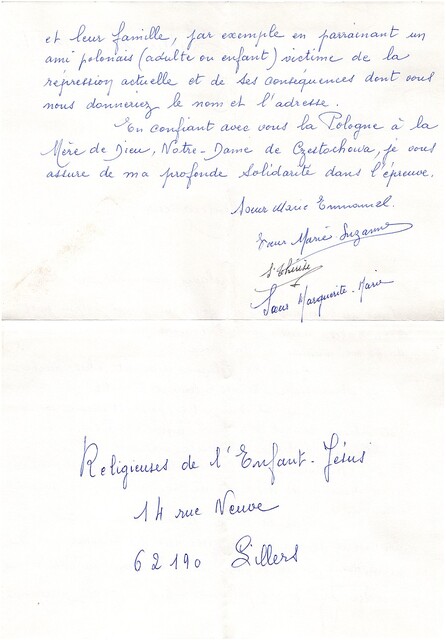 et leur famille, par exemple en parrainant un
ami polonais (adulte ou enfant) victime de la
répression actuelle et de ses conséquences dont vous
nous donneriez le nom et l'adresse.
En confiant avec vous la Pologne à la
Mère de Dieu, Notre-Dame de Czestochowa, je vous
assure de ma profonde solidarité dans l'épreuve.
Soeur Marie Emmanuel.
Soeur Marie Suzanne
Sr Thérèse
Soeur Marguerite-Marie
Religieuses de l'Enfant-Jésus
14 rue Neuve
62190 Lillers